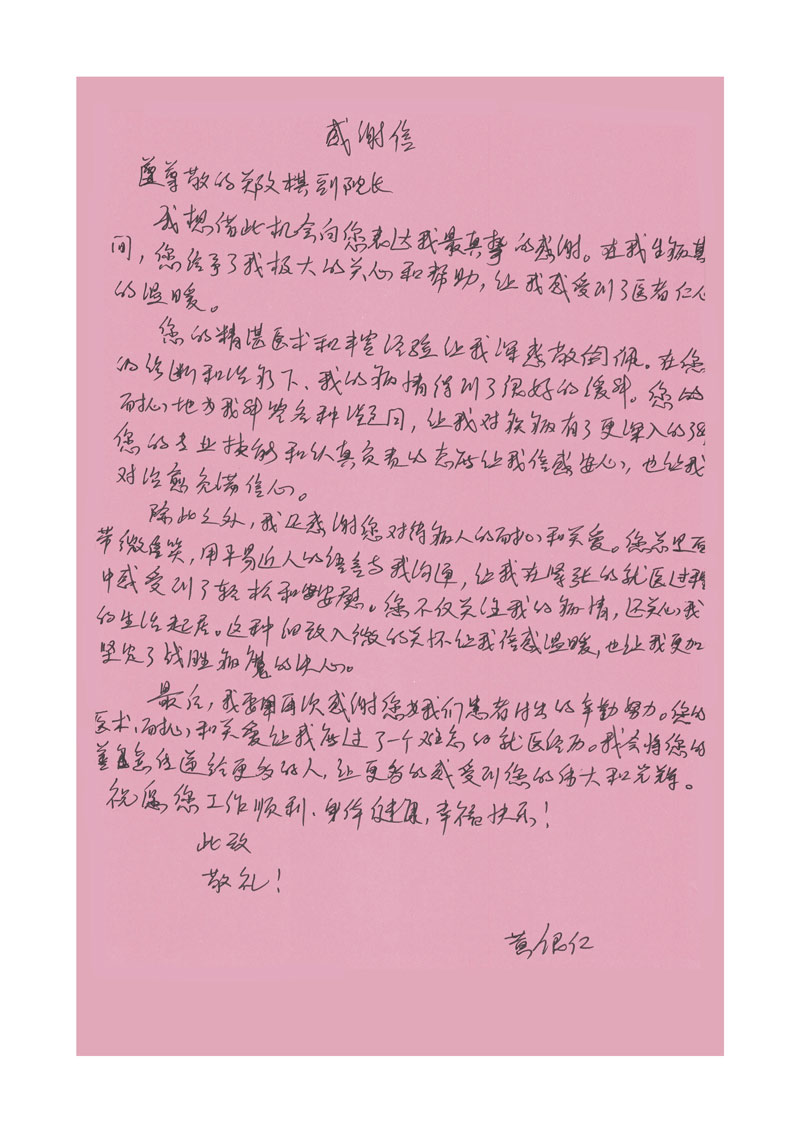 感谢信
尊敬的郑文棋副院长
我想借此机会向您表达我最真挚的感谢。在我生病其
间，您给予了我极大的关心和帮助，让我感受到了医者仁心
的温暖。
您的精湛医术和丰富经验让我深感敬佩。在您
的诊断和治疗下、我的病情得到了很好的缓解。您的
耐心地为我解答各种疑问，让我对疾病有了更深入的
您的专业技能和认真负责的态度让我倍感安心，也让我
对治愈充满信心。
除此之外，我还感谢您对待病人的耐心和关爱。您总是面
带微笑，用平易近人的语言与我沟通，让我在紧张的就医过程
中感受到了轻松和安慰。您不仅关注我的病情，还关心我
的生活起居。这种细致入微的关怀让我倍感温暖，也让我更加
坚定了战胜病魔的决心。
最后，我要再次感谢您为我们患者付出的辛勤努力。您的
医术、耐心和关爱让我度过了一个难忘的就医经历。我会将您的
善意传递给更多的人，让更多的感受到您的伟大和光辉。
祝愿您工作顺利、身体健康，幸福快乐！
此致
敬礼！
黄银仁